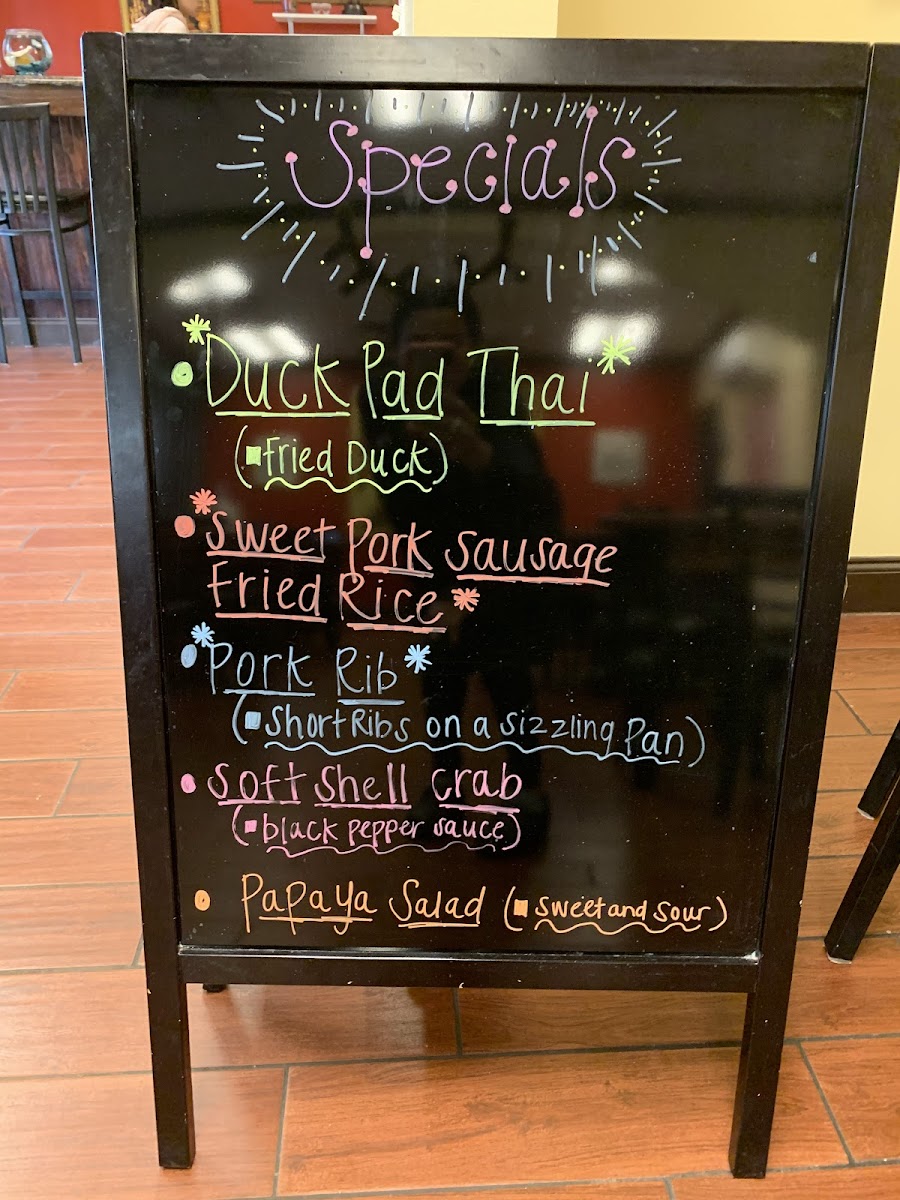 Specials
*Duck Pad Thai*
(▪Fried Duck)
*Sweet Pork Sausage
Fried Rice*
*Pork Rib*
(▪Short Ribs on a sizzling Pan)
Soft Shell Crab
(▪black pepper sauce)
Papaya Salad (▪sweet and sour)